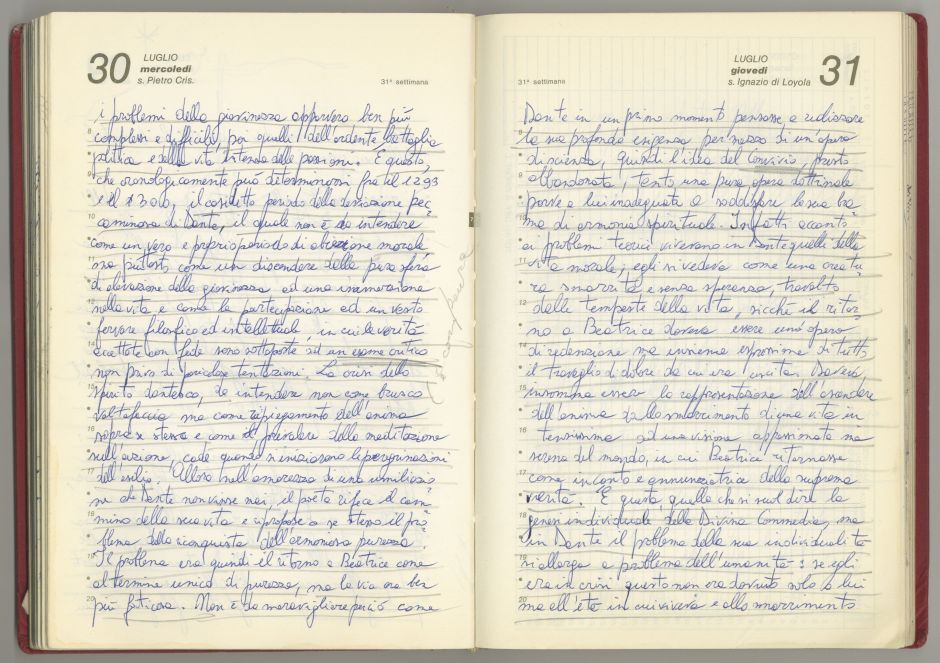 30
LUGLIO
mercoledì
s. Pietro Cris.
31ª settimana
i problemi della giovinezza apparvero ben più
complessi e difficili, poi quelli dell'ardente battaglia
politica e della vita intensa delle passioni. È questo,
che cronologicamente può determinarsi fra il 1293
e il 1300, il cosidetto periodo della
di Dante, il quale non è da intendere
come un vero e proprio periodo di morale
ma piuttosto come un discendere dalla pura sfera
di elevazione della giovinezza ad una immersione
nella vita e come la partecipazione ad un vasto
fervore filosofico ed intellettuale, in cui le verità
accettate con fede sono sottoposte ad un esame critico
non privo di tentazioni. La crisi dello
spirito dantesco, da intendere non come brusco
voltafaccia ma come ripiegamento dell'anima
sopra se stessa e come il prevalere della meditazione
sull'azione, cade quando iniziarono le peregrinazioni
dell'esilio. Allora nell'amarezza di una umiliazio
ne che Dante non visse mai, il poeta rifece il cam
mino della sua vita e ripropose a se stesso il pro
blema della riconquista dell'armoniosa purezza.
Il problema era quindi il ritorno a Beatrice come
al termine unico di purezza, ma la via era ben
più faticosa. Non è da meravigliare perciò come
31ª settimana
LUGLIO
giovedì
s. Ignazio di Loyola
31
Dante in un primo momento pensasse a realizzare
la sua profonda esigenza per mezzo di un'opera
di scienza, quindi l'idea del Convivio, presto
abbandonata, tanto una pura opera dottrinale
parve a lui inadeguata a soddisfare la sua bra
ma di armonia spirituale. Infatti accanto
ai problemi teorici vivevano in Dante quelli della
vita morale; egli si vedeva come una creatu
ra smarrita e senza speranza, travolta
dalle tempeste della vita, sicchè il ritor
no a Beatrice doveva essere una opera
di redenzione ma insieme espressione di tutto
il travaglio di dolore da cui era uscita. Doveva
insomma essere la rappresentazione dell'ascendere
dell'anima dallo smarrimento di una vita in
tensissima ad una visione appassionata ma
serena del mondo, in cui Beatrice ritornasse
come incanto e annunciatrice della suprema
verità. È questa quella che si suol dire la
genesi individuale della Divina Commedia, ma
in Dante il problema della sua individualità
si allarga a problema dell'umanità: se egli
era in crisi questo non era dovuto solo a lui
ma all'età in cui viveva e allo smarrimento